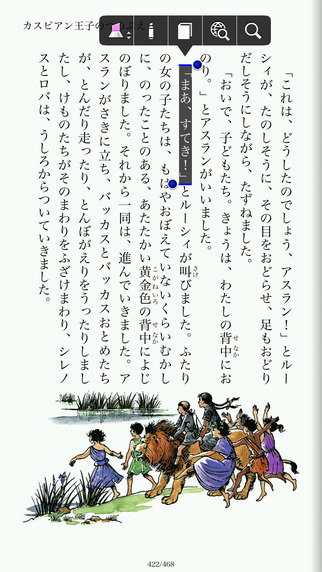 カスピアン王子のつのぶえ
「これは、どうしたのでしょう、アスラン！」とルー
シィが、たのしそうに、その目をおどらせ、足もおどり
だしそうにしながら、たずねました。
「おいで、子どもたち。きょうは、わたしの背中にお
のり。」とアスランがいいました。
「まあ、すてき！」とルーシィが叫びました。ふたり
の女の子たちは、もはやおぼえていないくらいむかし
に、のったことのある、あたたかい黄金色の背中によじ
のぼりました。それから一同は、進んでいきました。ア
スランがさきに立ち、バッカスとバッカスおとめたち
が、とんだり走ったり、とんぼがえりをうったりしまし
たし、けものたちがそのまわりをふざけまわり、シレノ
スとロバは、うしろからついていきました。
422/468